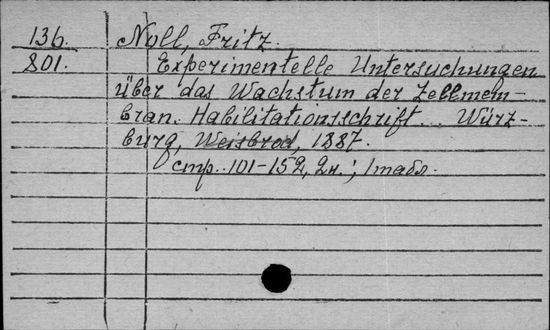 136. Noll, Fritz.
801. Experimentelle Untersuchungen
über das Wachstum der Zellmem-
bran. Habilitationsschrift... Würz-
burg, Weisbrod, 1887.
стр. 101-152, 2н.; 1 табл.